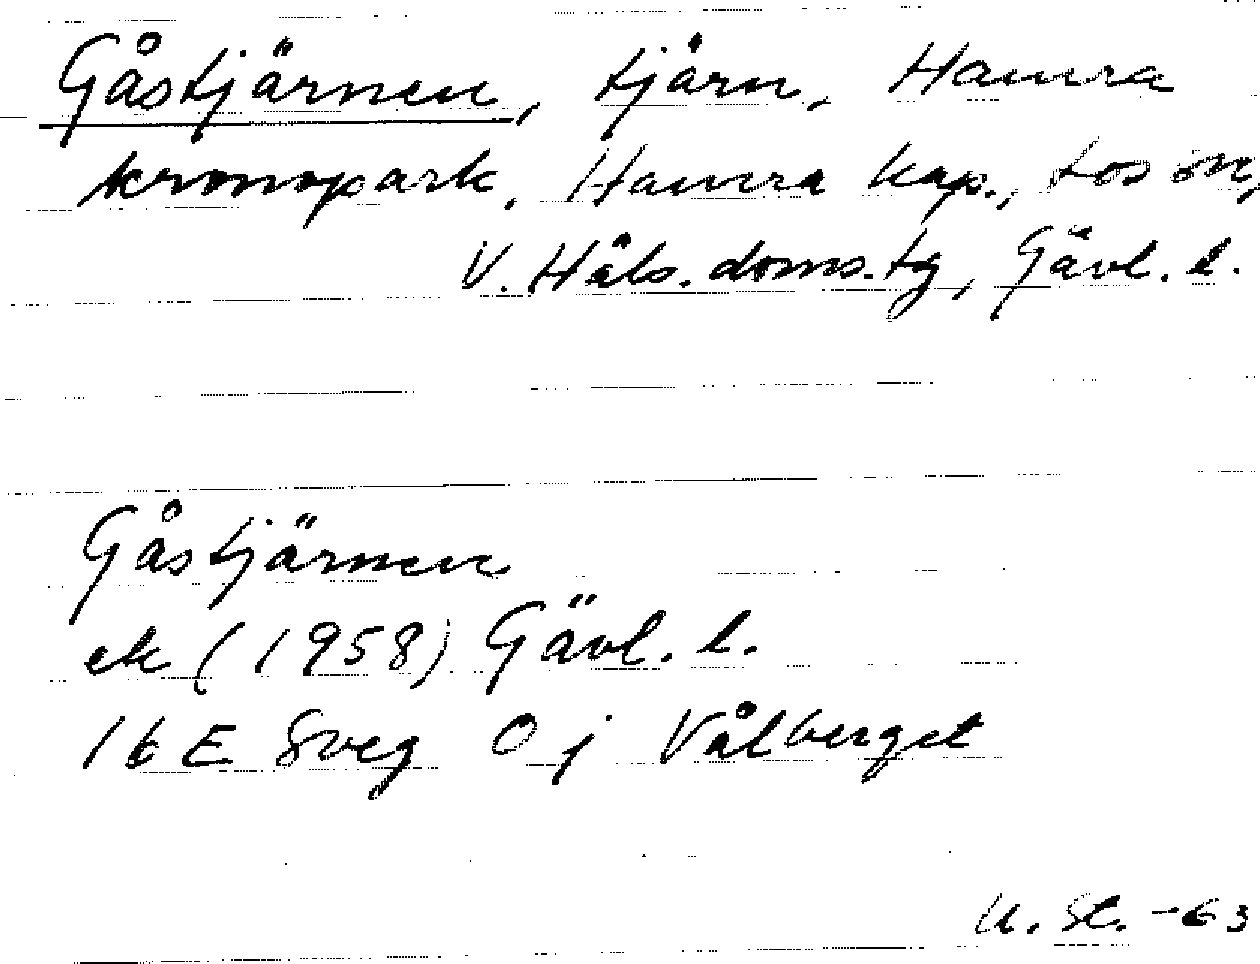 Gåstjärnen, tjärn, Hamra
kronopark, Hamra kap., Los sn,
V. Häls. doms.tg, Gävl. l.
Gåstjärnen
ek (1958) Gävl. l.
16 E Sveg 0 j Vålberget
U. Sl. -63